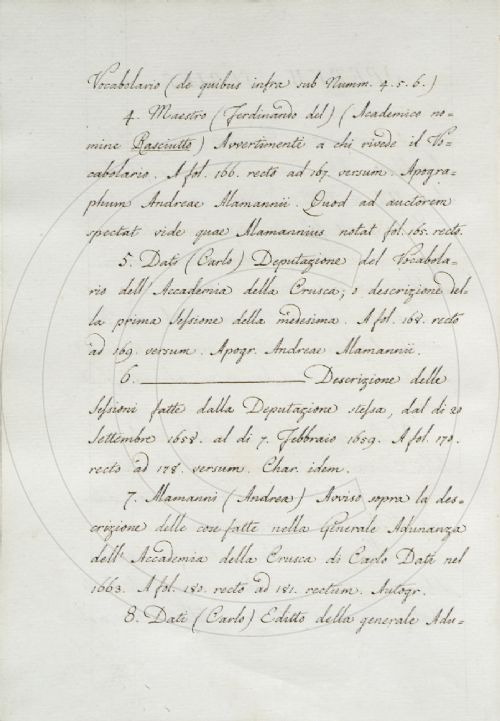 Vocabolario (de quibus infra sub Numm. 4. 5. 6.)
4. Maestro (Ferdinando del) (Academico no=
mine Rasciutto) Avvertimenti a chi rivede il Vo=
cabolario. A fol. 166. recto ad 167. versum. Apogra=
phum Andreae Alamannii. Quod ad auctorem
spectat vide quae Alamannius notat fol. 165. recto.
5. Dati (Carlo) Deputazione del Vocabola=
rio dell' Accademia della Crusca, o descrizione del=
la prima Sessione della medesima. A fol. 168. recto
ad 169. versum. Apogr. Andreae Alamannii.
6. ——— Descrizione delle
Sessioni fatte dalla Deputazione stessa, dal dì 20
Settembre 1658. al dì 7. Febbraio 1659. A fol. 170.
recto ad 178. versum. Char. idem.
7. Alamanni (Andrea) Avviso sopra la des=
crizione delle cose fatte nella Generale Adunanza
dell' Accademia della Crusca di Carlo Dati nel
1663. A fol. 180. recto ad 181. rectum. Autogr.
8. Dati (Carlo) Editto della generale Adu=